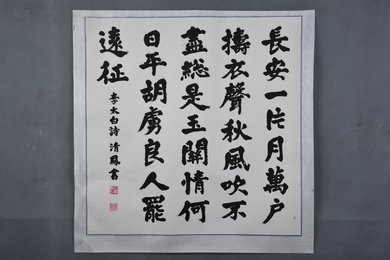 長安一片月萬户
擣衣聲秋風吹不
盡總是玉關情何
日平胡虜良人罷
遠征
李太白詩 清 書